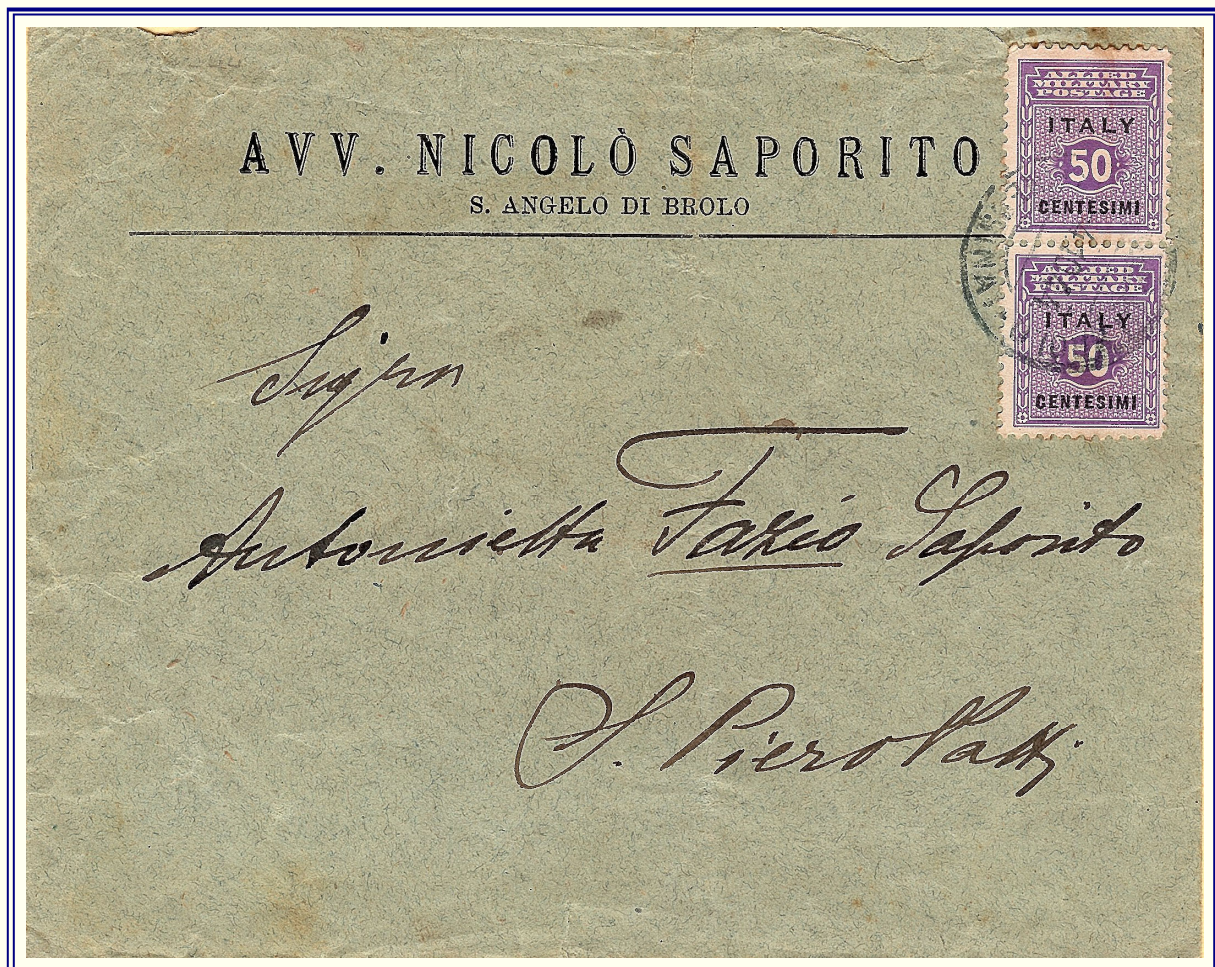 AVV. NICOLÒ SAPORITO
S. ANGELO DI BROLO
ALLIED
MILITARY
POSTAGE
ITALY
50
CENTESIMI
ALLIED
MILITARY
POSTAGE
ITALY
50
CENTESIMI
Sigra
Antonietta Fazio Saporito
S. Piero Patti